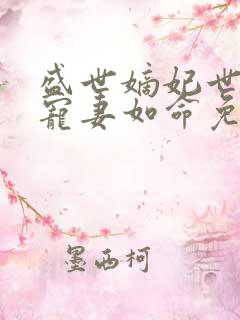 盛世嫡妃世
宠妻如命免
墨西柯